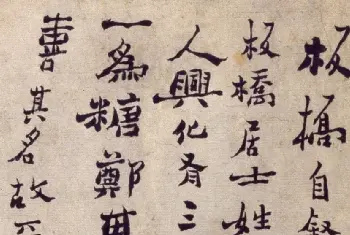 板橋自敘
板橋居士姓
人興化有三
一爲糖鄭其
喜其名故